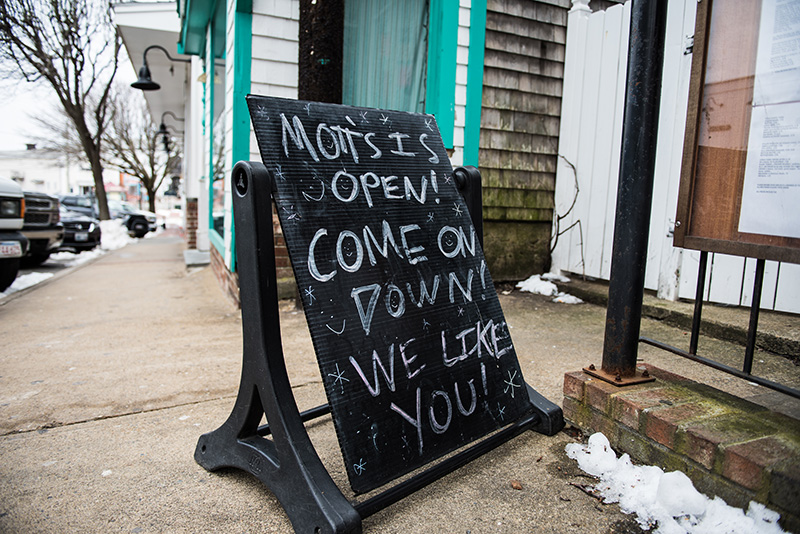 MOTT'S IS
OPEN!
COME ON
DOWN!
WE LIKE
YOU!